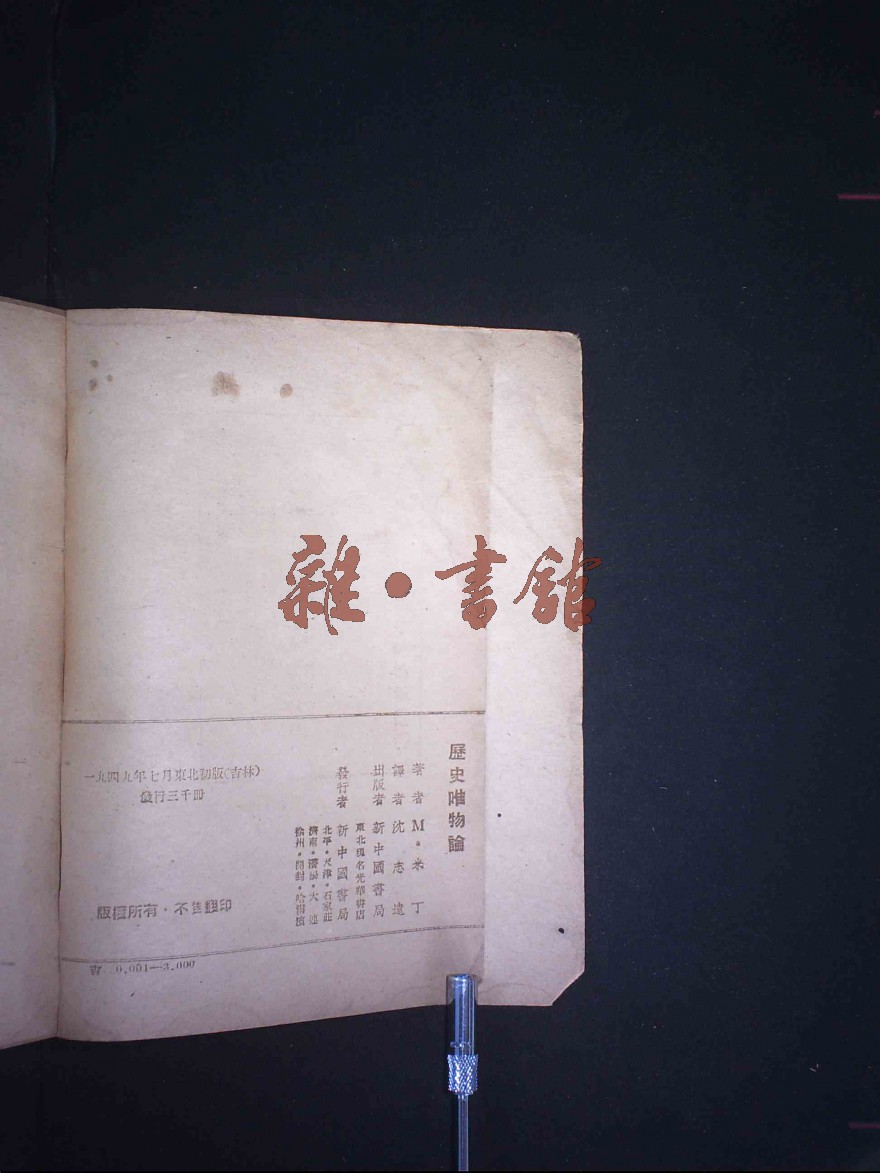 雜·書館
歷史唯物論
著者 M·米丁
譯者 沈志遠
出版者 新中國書局
東北現名光華書店
發行者 新中國書局
北平·天津·石家莊
濟南·瀋陽·大連
徐州·開封·哈爾濱
一九四九年七月東北初版(吉林)
發行三千冊
版權所有·不准翻印
吉 0,001—3,000